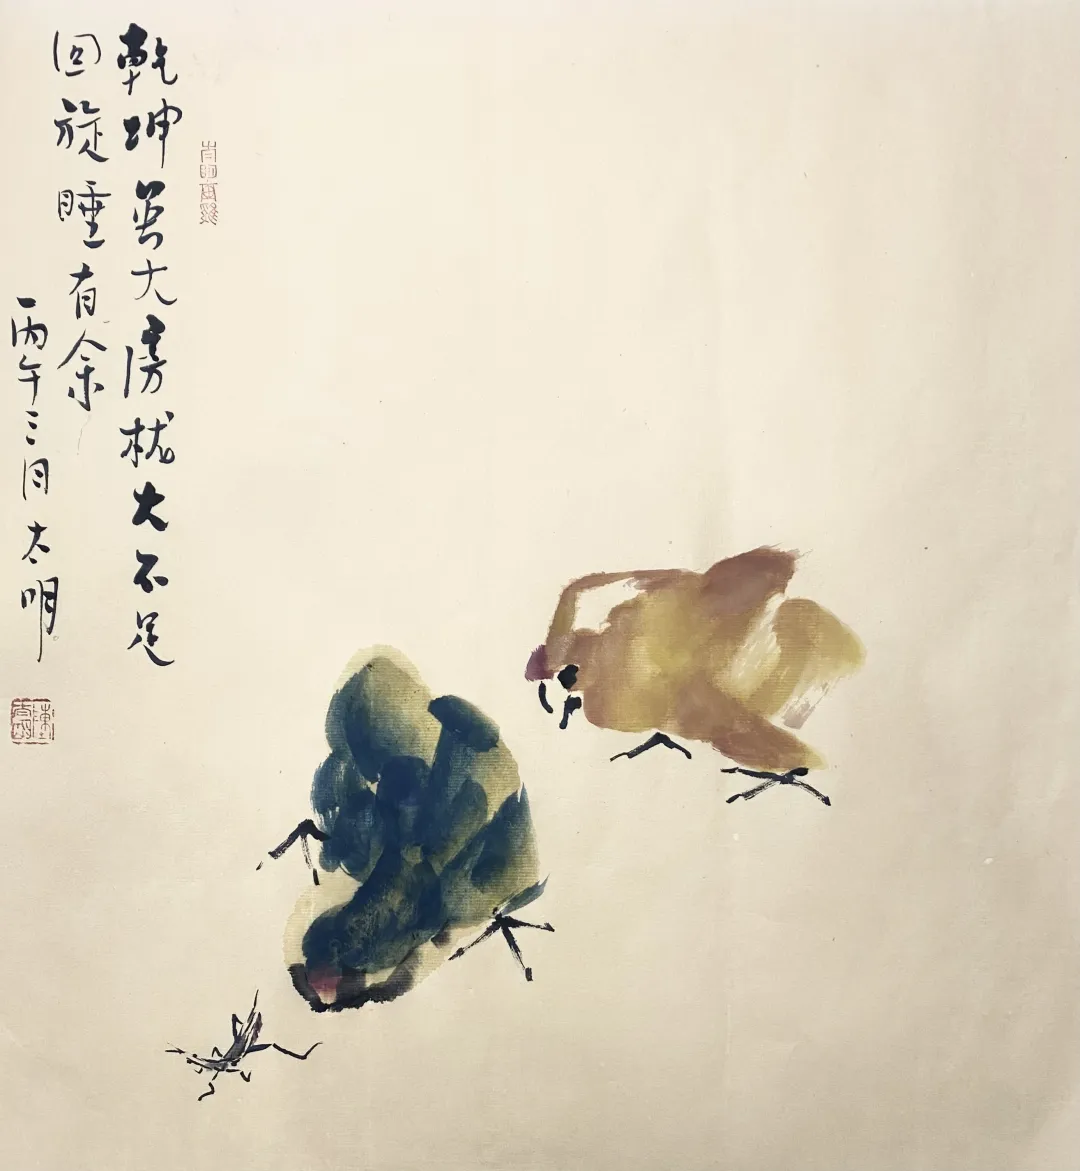 乾坤大房栊大不足
回旋睡有余
丙午三月太明